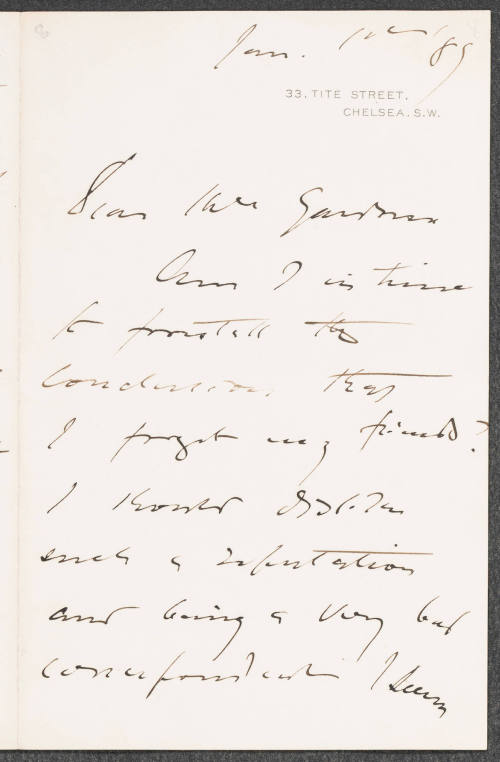 Jan. 1st '89
33, TITE STREET,
CHELSEA, S.W.
Dear Mrs Gardner
Am I in time
to forestall the
conclusion that
I forget my friends?
I should dislike
such a reputation
and being a very bad
correspondent I seem